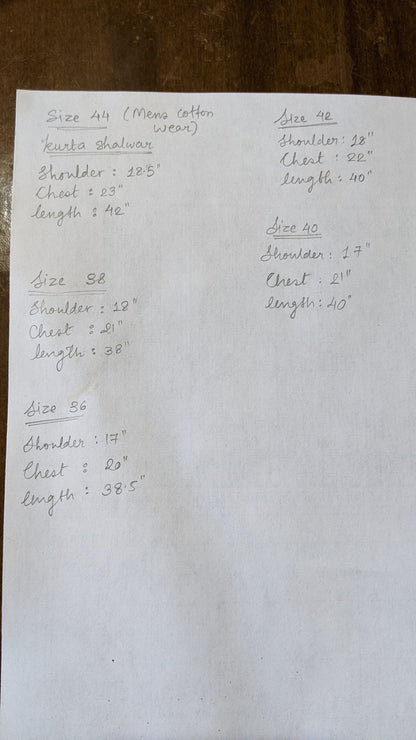 Size 44 (Mens cotton
wear)
Kurta Shalwar
Shoulder : 18.5"
Chest : 23"
length : 42"
Size 38
Shoulder : 18"
Chest : 21"
length : 38"
Size 36
Shoulder : 17"
Chest : 20"
length : 38.5"
Size 42
Shoulder : 18"
Chest : 22"
length : 40"
Size 40
Shoulder : 17"
Chest : 21"
length : 40"